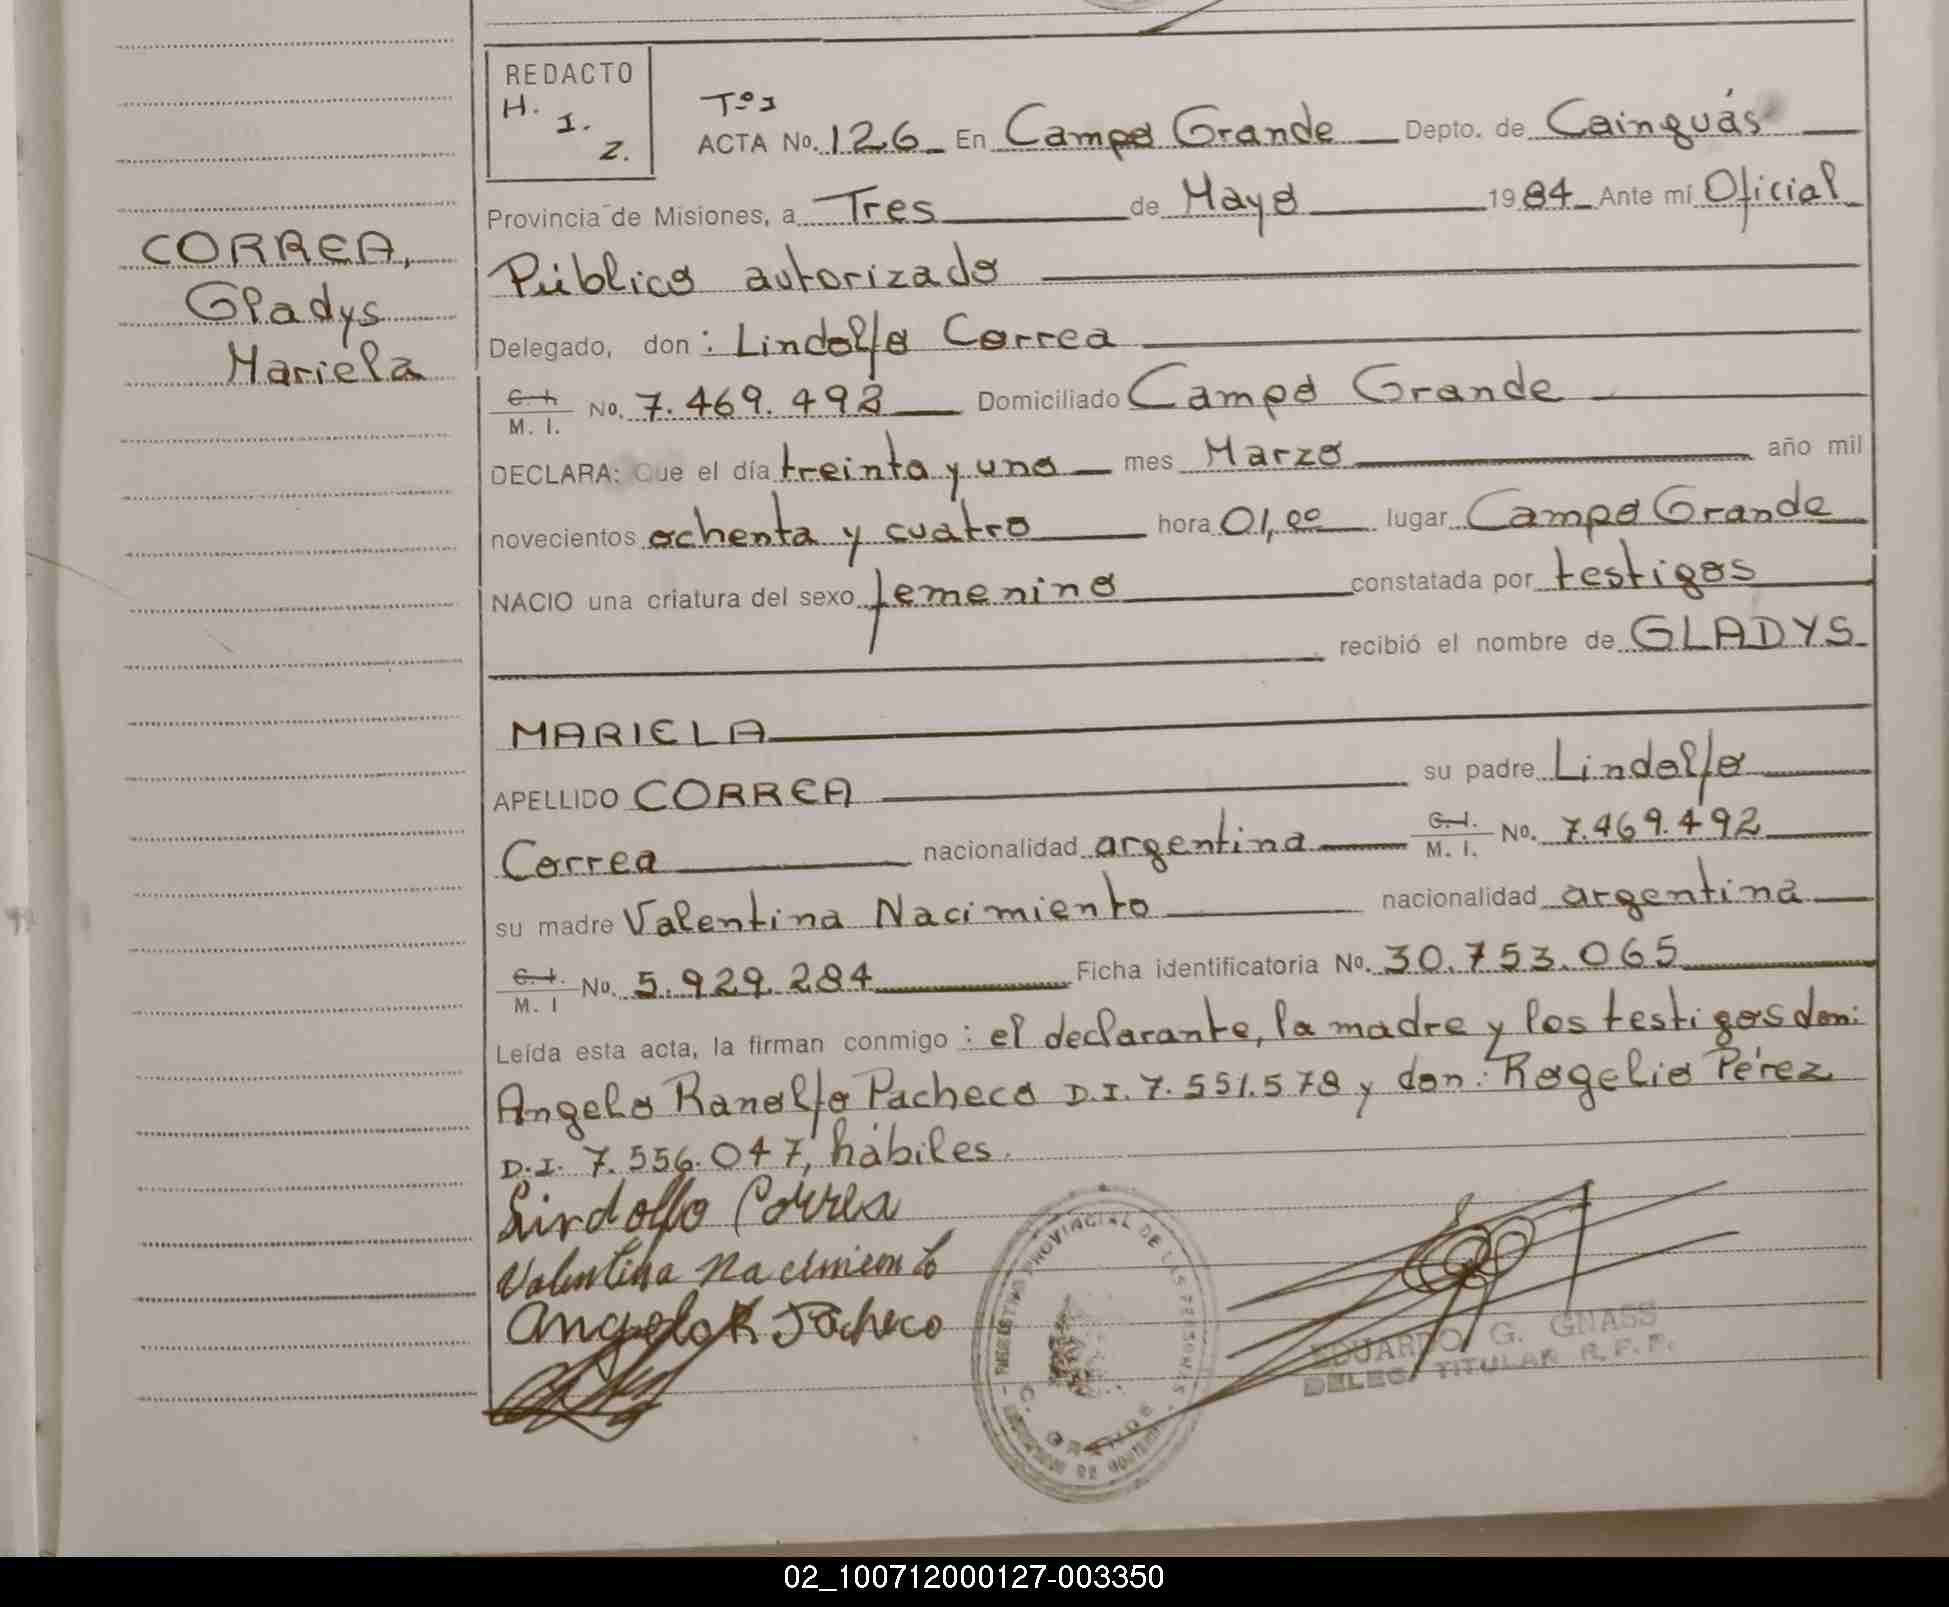 REDACTO
H. I. Z.
Tº I
ACTA No. 126 En Campo Grande Depto. de Cainguás
Provincia de Misiones, a Tres de Mayo 1984 Ante mí Oficial
Público autorizado
CORREA,
Gladys
Mariela
Delegado, don : Lindolfo Correa
C. I.
M. I. No. 7.469.492 Domiciliado Campo Grande
DECLARA: Que el día treinta y uno mes Marzo año mil
novecientos ochenta y cuatro hora 01,00 lugar Campo Grande
NACIO una criatura del sexo femenino constatada por testigos
recibió el nombre de GLADYS
MARIELA
APELLIDO CORREA su padre Lindolfo
Correa nacionalidad argentina C. I. M. I. No. 7.469.492
su madre Valentina Nacimiento nacionalidad argentina
C. I.
M. I No. 5.929.284 Ficha identificatoria No. 30.753.065
Leída esta acta, la firman conmigo : el declarante, la madre y los testigos don:
Angelo Ranolfo Pacheco D.I. 7.551.578 y don: Rogelio Pérez
D.I. 7.556.047, hábiles.
Lindolfo Correa
Valentina Nacimiento
Angelo R Pacheco
REGISTRO PROVINCIAL DE LAS PERSONAS
C. GRANDE
EDUARDO G. GNASS
DELEG. TITULAR R.P.P.
02_100712000127-003350